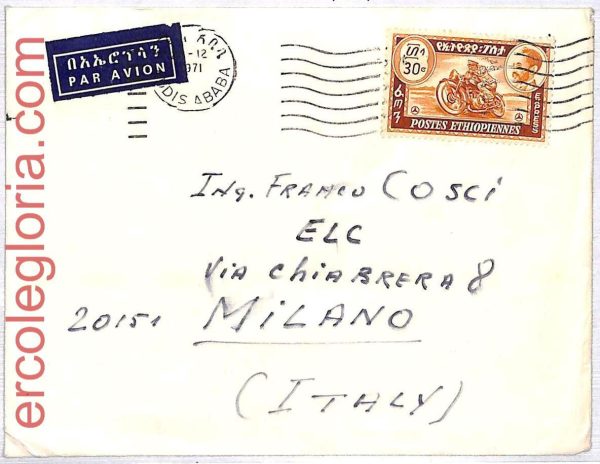 ercolegloria.com
በአኤሮፕላን
PAR AVION
አዲስ አበባ
-12
1971
ADDIS ABABA
የኢትዮጵያ፡ፖስታ
30c
EXPRES
POSTES ETHIOPIENNES
Ing. Franco Cosci
ELC
Via Chiabrera 8
20151 Milano
(Italy)